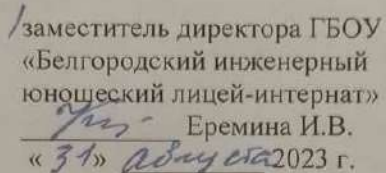 /заместитель директора ГБОУ
«Белгородский инженерный
юношеский лицей-интернат»
Еремина И.В.
« 31» августа 2023 г.